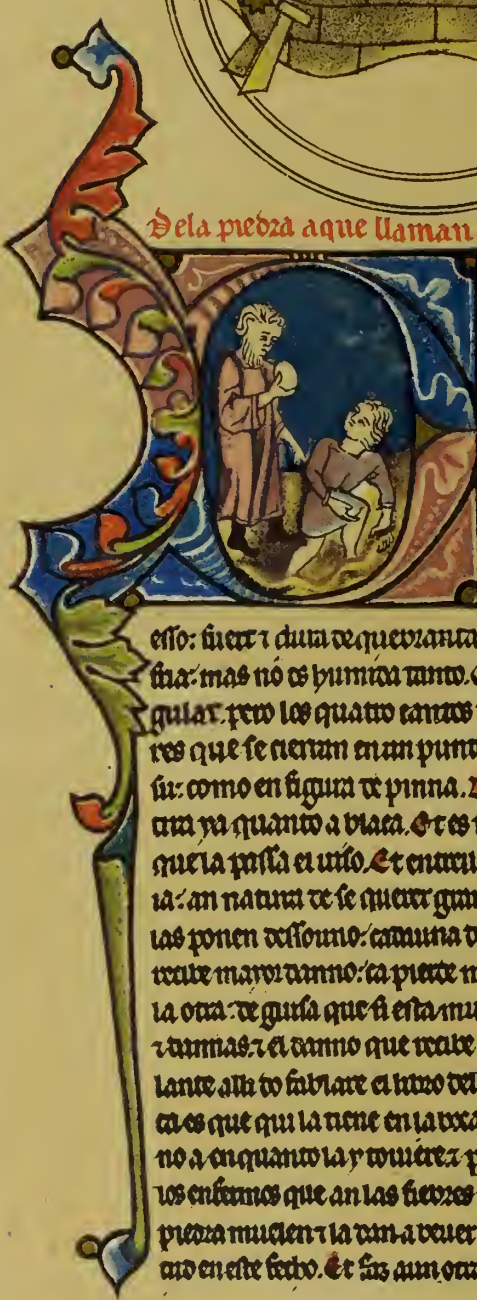 Dela piedra aque llaman
esso: fuert ⁊ dura de quebranta
fria: mas nó es humida tanto.
gular. pero los quatro cantos
res que se cierran en un punt
su: como en figura de pinna.
cura ya quanto a blaca. Et es
que la passa el uiso. Et entrell
la: an natura de se querer gran
las ponen dessouno: cadauna d
recibe mayor danno: ca pierde m
la otra. de guisa que si esta mu
⁊ dannias. ⁊ el danno que recibe
lante alli do fablare el libro del
ca es que qui la tiene en la boca
no a en quanto la y touiere. ⁊ p
los enfermos que an las fiebres
piedra muelen ⁊ la dan a beuer
cho en este fecho. Et faz aun otra